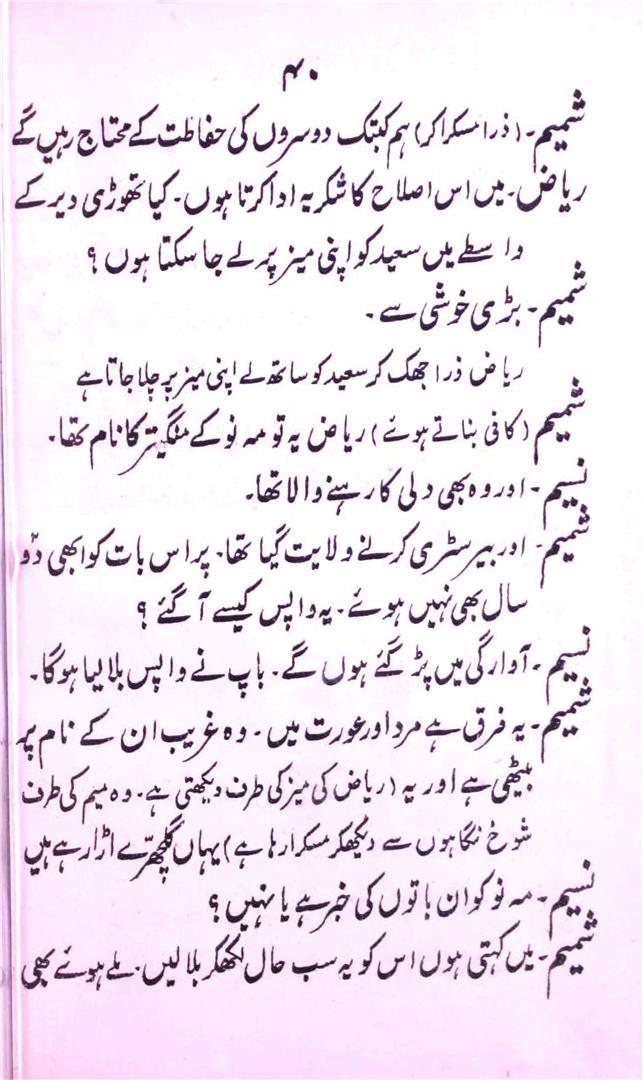 ۴۰
شمیم۔ (ذرا مسکرا کر) ہم کبتک دوسروں کی حفاظت کے محتاج رہیں گے
ریاض۔ میں اس اصلاح کا شکریہ ادا کرتا ہوں۔ کیا تھوڑی دیر کے
واسطے میں سعید کو اپنی میز پر لے جا سکتا ہوں ؟
شمیم۔ بڑی خوشی سے۔
ریاض ذرا جھک کر سعید کو ساتھ لے اپنی میز پر چلا جاتا ہے
شمیم (کافی بناتے ہوئے) ریاض یہ تو مہ نو کے منگیتر کا نام تھا۔
نسیم۔ اور وہ بھی دلی کا رہنے والا تھا۔
شمیم۔ اور بیرسٹری کرنے ولایت گیا تھا۔ پر اس بات کو ابھی دو
سال بھی نہیں ہوئے۔ یہ واپس کیسے آ گئے ؟
نسیم۔ آوارگی میں پڑ گئے ہوں گے۔ باپ نے واپس بلا لیا ہوگا۔
شمیم۔ یہ فرق ہے مرد اور عورت میں۔ وہ غریب ان کے نام پر
بیٹھی ہے اور یہ (ریاض کی میز کی طرف دیکھتی ہے۔ وہ میم کی طرف
شوخ نگاہوں سے دیکھکر مسکرا رہا ہے) یہاں گلچھرّے اڑا رہے ہیں
نسیم۔ مہ نو کو ان باتوں کی خبر ہے یا نہیں ؟
شمیم۔ میں کہتی ہوں اس کو یہ سب حال لکھکر بلا لیں۔ ملے ہوئے بھی